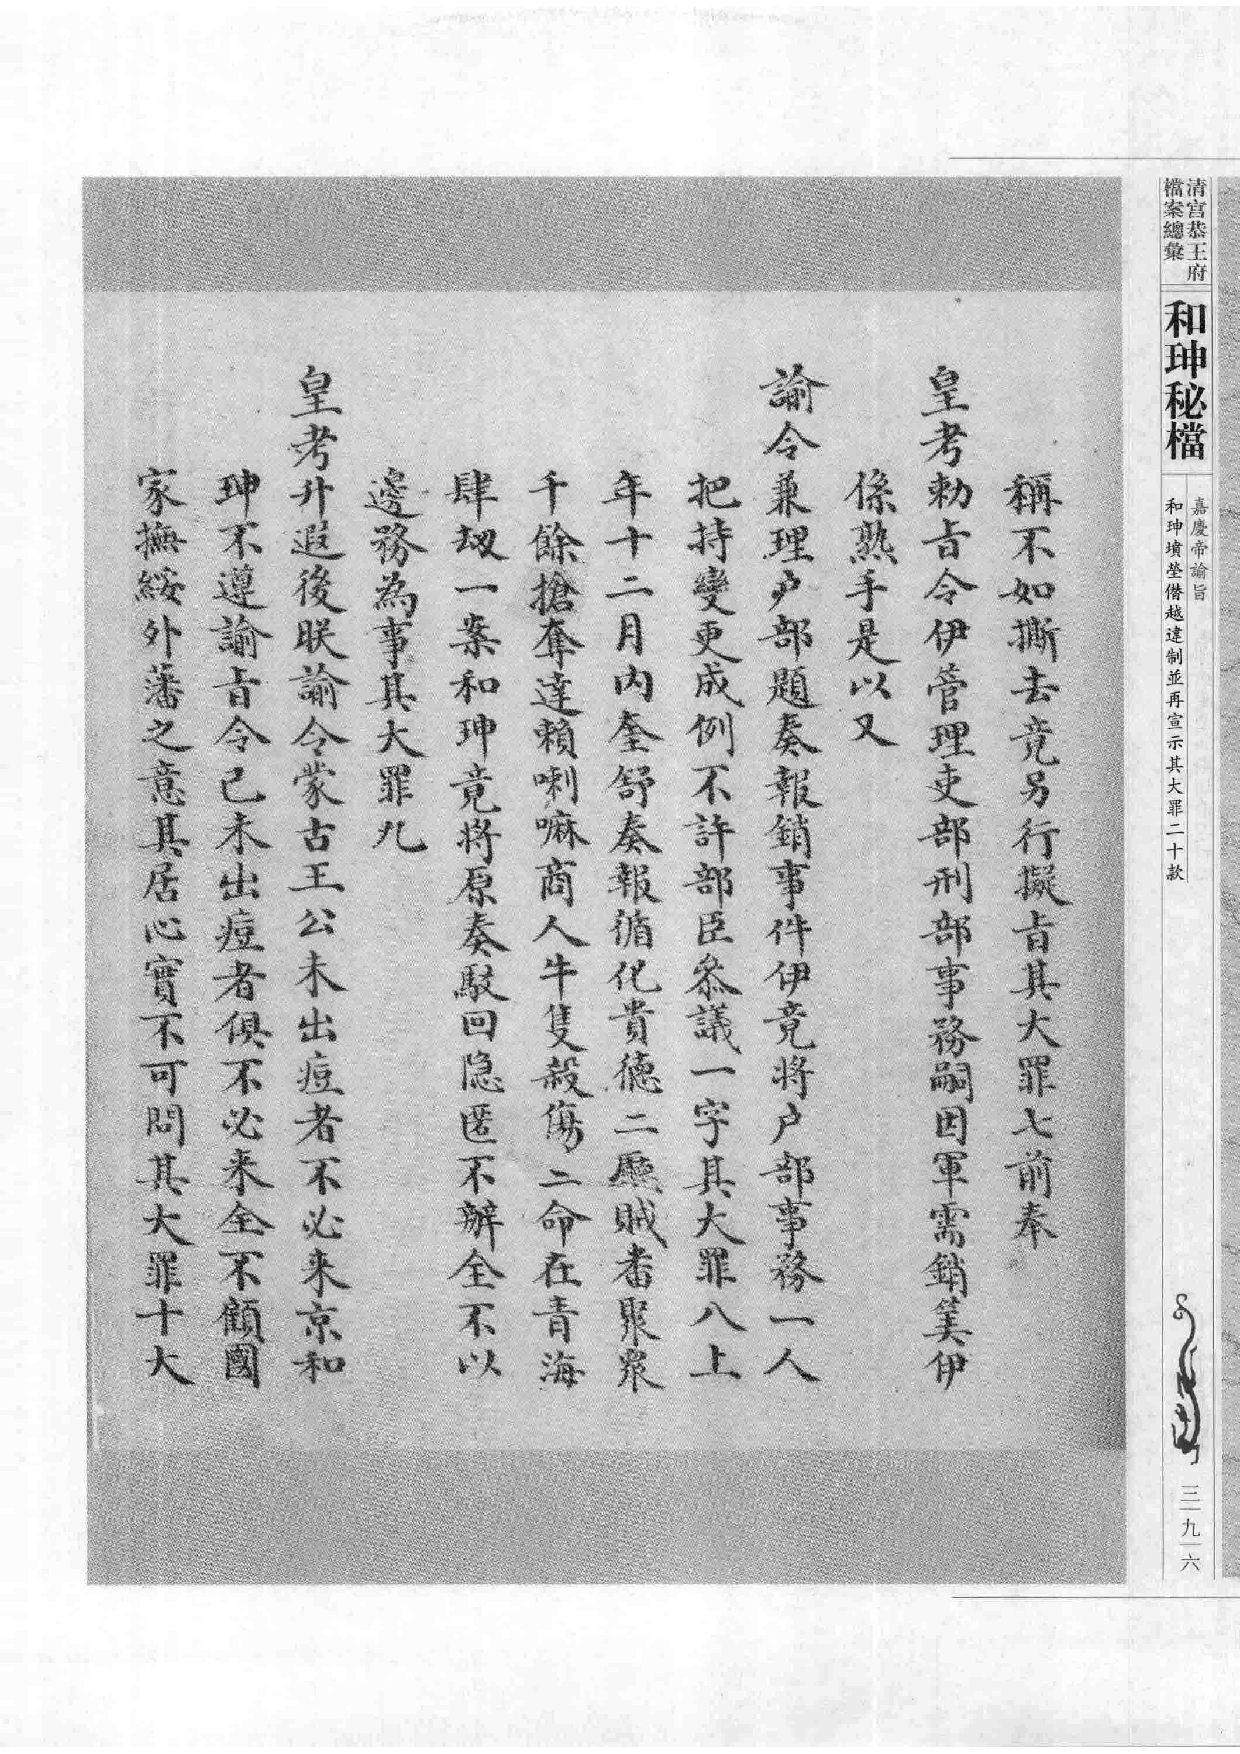 清宮恭王府
檔案總彙
和珅秘檔
嘉慶帝諭旨
和珅墳塋僭越違制並再宣示其大罪二十款
三九六
稱不如撕去竟另行擬旨其大罪七前奉
皇考勅旨令伊管理吏部刑部事務嗣因軍需銷算伊
係熟手是以又
諭令兼理戶部題奏報銷事件伊竟將戶部事務一人
把持變更成例不許部臣叅議一字其大罪八上
年十二月內奎舒奏報循化貴德二廳賊番聚衆
千餘搶奪達賴喇嘛商人牛隻殺傷二命在青海
肆刧一案和珅竟將原奏駁回隱匿不辦全不以
邊務為事其大罪九
皇考升遐後朕諭令蒙古王公未出痘者不必来京和
珅不遵諭旨令已未出痘者俱不必来全不顧國
家撫綏外藩之意其居心實不可問其大罪十大